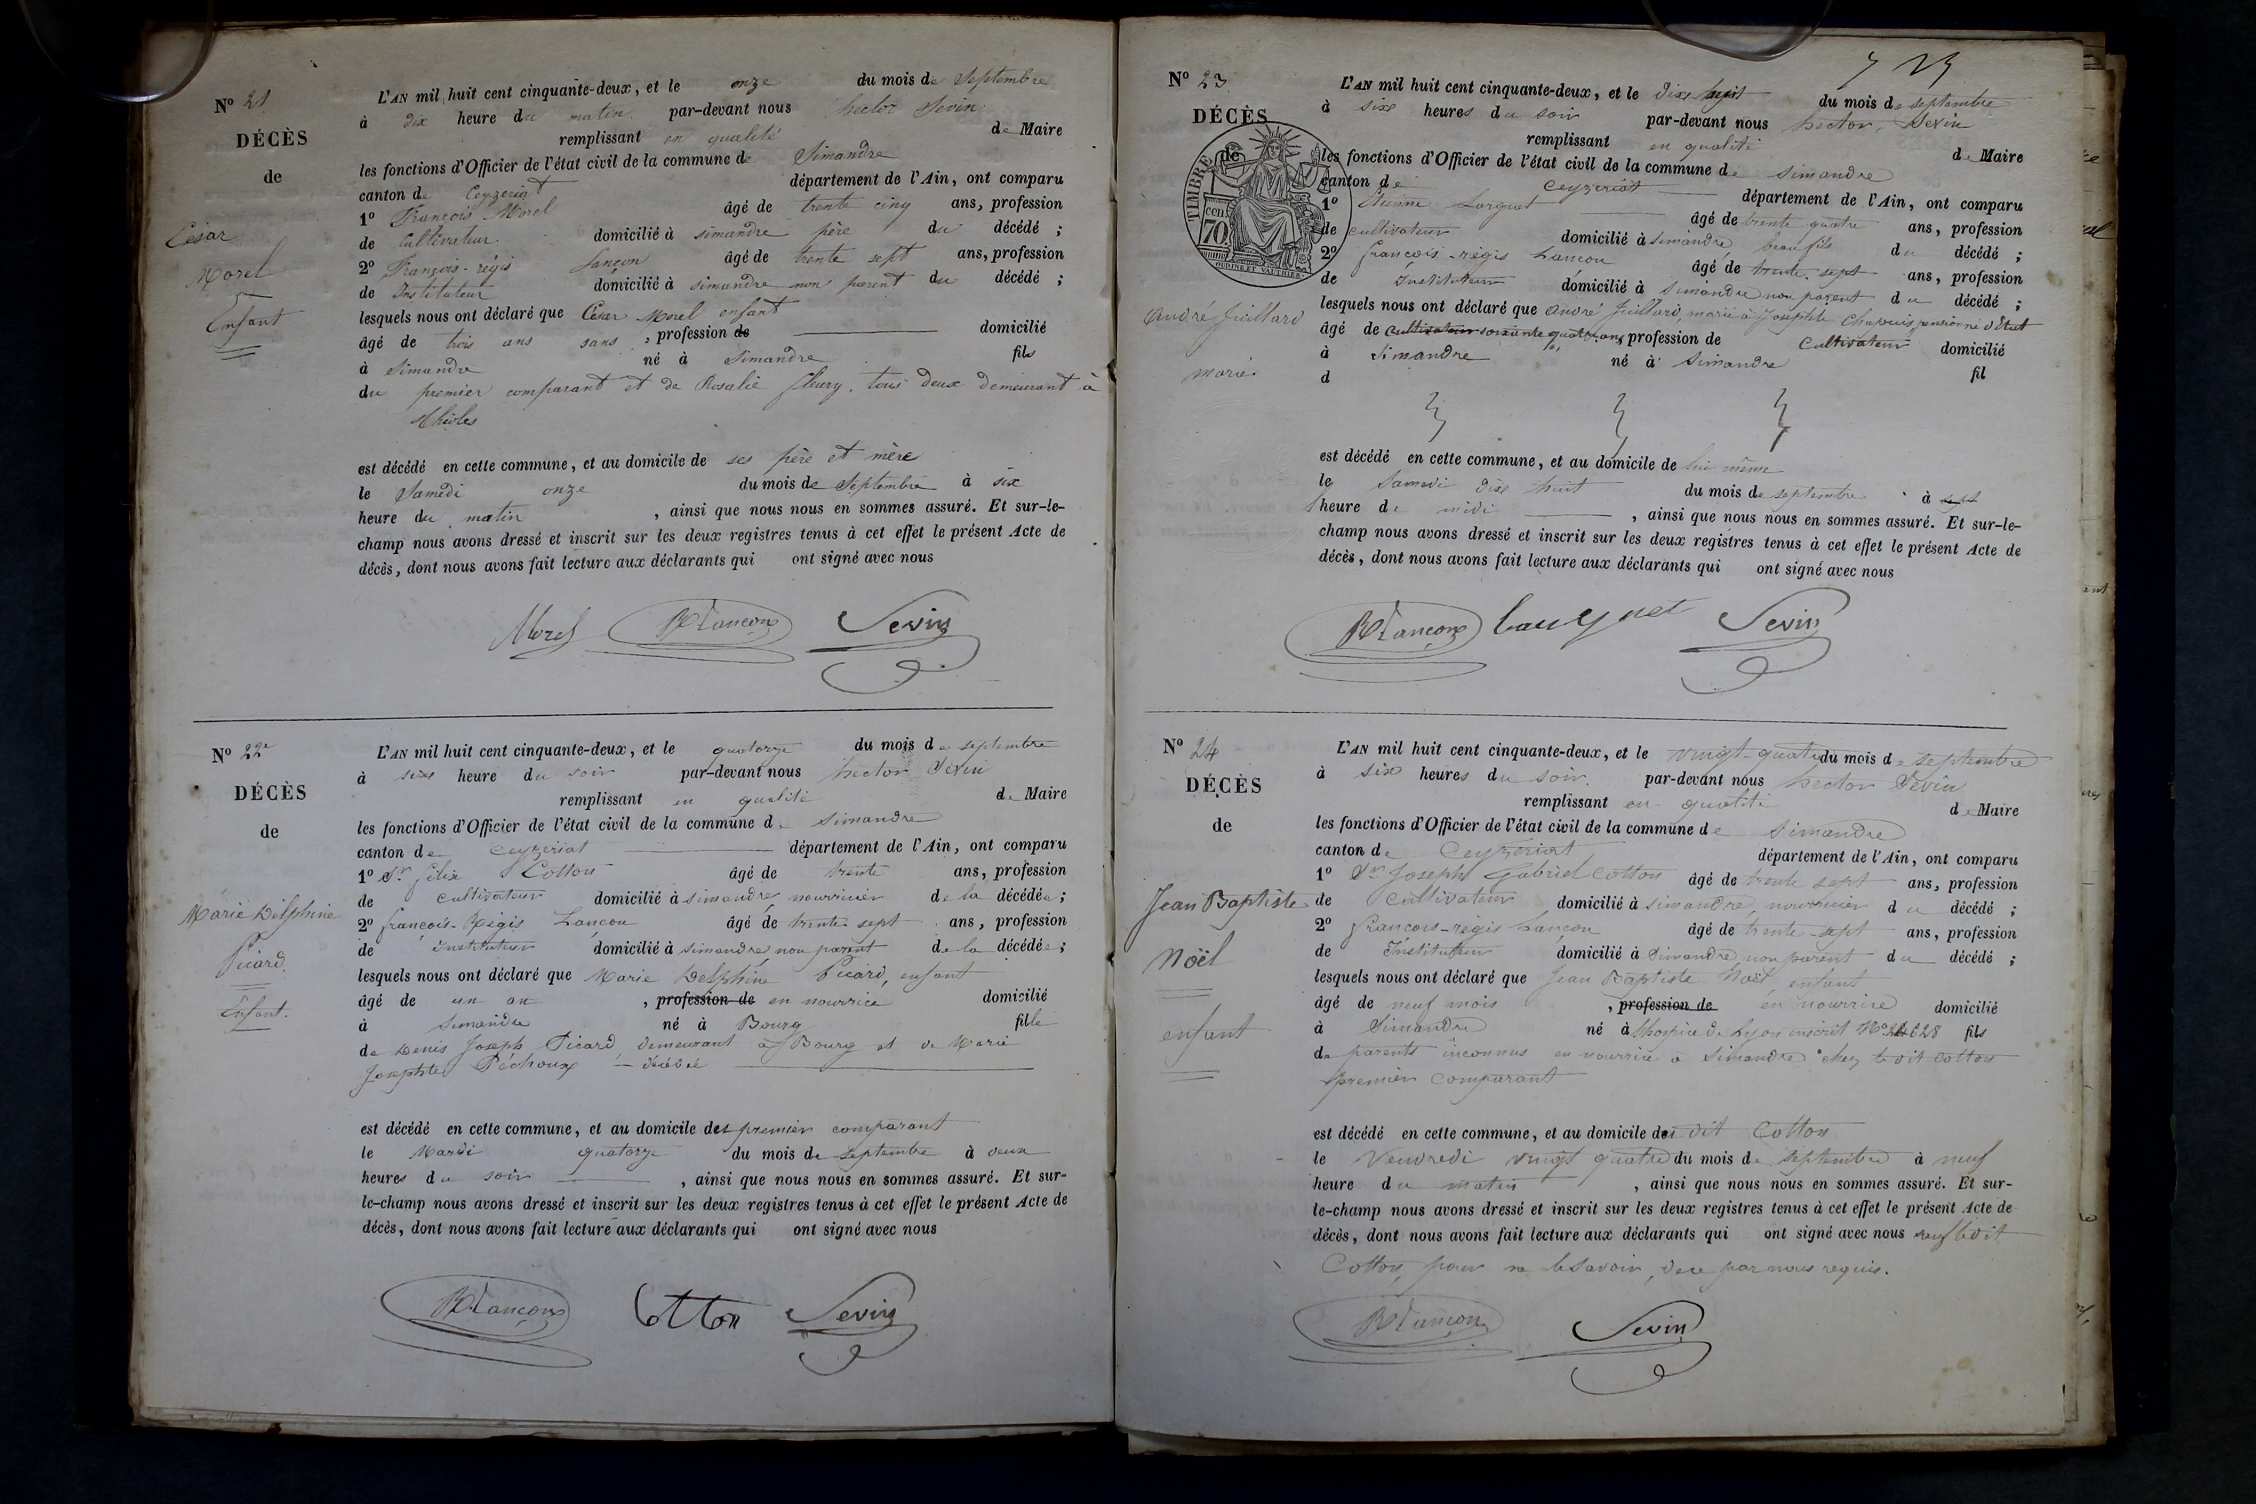 N° 21
DÉCÈS
de
César
Morel
Enfant
L'AN mil huit cent cinquante-deux, et le onze du mois de Septembre
à dix heure du matin par-devant nous hector Sevin
remplissant en qualité de Maire
les fonctions d'Officier de l'état civil de la commune de Simandre
canton de Ceyzeriat département de l'Ain, ont comparu
1° François Morel âgé de trente cinq ans, profession
de Cultivateur domicilié à simandre père du décédé ;
2° François-régis Lançon âgé de trente sept ans, profession
de Instituteur domicilié à simandre non parent du décédé ;
lesquels nous ont déclaré que César Morel enfant
âgé de trois ans sans, profession de domicilié
à Simandre né à Simandre fils
du premier comparant et de Rosalie fleury, tous deux demeurant à
est décédé en cette commune, et au domicile de ses père et mère
le Samedi onze du mois de Septembre à six
heure du matin, ainsi que nous nous en sommes assuré. Et sur-le-
champ nous avons dressé et inscrit sur les deux registres tenus à cet effet le présent Acte de
décès, dont nous avons fait lecture aux déclarants qui ont signé avec nous
Morel RLançon Sevin
N° 22e
DÉCÈS
de
Marie Delphine
Picard
Enfant.
L'AN mil huit cent cinquante-deux, et le quatorze du mois de septembre
à six heure du soir par-devant nous hector Sevin
remplissant en qualité de Maire
les fonctions d'Officier de l'état civil de la commune de simandre
canton de ceyzeriat département de l'Ain, ont comparu
1° Sr félix Cotton âgé de trente ans, profession
de cultivateur domicilié à simandre, nourricier de la décédée ;
2° françois-Régis Lancon âgé de trente sept ans, profession
de instituteur domicilié à simandre, non parent de la décédée ;
lesquels nous ont déclaré que Marie Delphine Picard, enfant
âgé de un an, profession de en nourrice domicilié
à simandre né à Bourg fille
de Denis Joseph Picard, demeurant à Bourg et de Marie
Josephte Péchoux décédée
est décédé en cette commune, et au domicile de premier comparant
le Mardi quatorze du mois de septembre à deux
heures du soir, ainsi que nous nous en sommes assuré. Et sur-
le-champ nous avons dressé et inscrit sur les deux registres tenus à cet effet le présent Acte de
décès, dont nous avons fait lecture aux déclarants qui ont signé avec nous
RLançon Cotton Sevin
N° 23
DÉCÈS
de
TIMBRE
70 cen.
OUDINE ET VAUTHIER
André Juillard
marié
L'AN mil huit cent cinquante-deux, et le dix huit du mois de septembre
à six heures du soir par-devant nous hector Sevin
remplissant en qualité de Maire
les fonctions d'Officier de l'état civil de la commune de simandre
canton de ceyzeriat département de l'Ain, ont comparu
1° Étienne âgé de trente quatre ans, profession
de cultivateur domicilié à simandre beau fils du décédé ;
2° françois-régis Lancon âgé de trente-sept ans, profession
de Instituteur domicilié à simandre non parent du décédé ;
lesquels nous ont déclaré que André Juillard, marié à Josephte Chapuis, pensionné d'état
âgé de cultivateur soixante quatre ans profession de Cultivateur domicilié
à Simandre né à Simandre
d fil
est décédé en cette commune, et au domicile de lui même
le Samedi dix huit du mois de septembre à sept
heure de midi, ainsi que nous nous en sommes assuré. Et sur-le-
champ nous avons dressé et inscrit sur les deux registres tenus à cet effet le présent Acte de
décès, dont nous avons fait lecture aux déclarants qui ont signé avec nous
RLançon Sevin
N° 24
DÉCÈS
de
Jean Baptiste
Noël
enfant
L'AN mil huit cent cinquante-deux, et le vingt-quatre du mois de septembre
à six heures du soir par-devant nous hector Sevin
remplissant en qualité de Maire
les fonctions d'Officier de l'état civil de la commune de simandre
canton de Ceyzeriat département de l'Ain, ont comparu
1° Sr Joseph Gabriel Cotton âgé de trente sept ans, profession
de Cultivateur domicilié à simandre, nourricier du décédé ;
2° françois-régis Lançon âgé de trente sept ans, profession
de Instituteur domicilié à Simandre, non parent du décédé ;
lesquels nous ont déclaré que Jean Baptiste Noël, enfant
âgé de neuf mois, profession de en nourrice domicilié
à Simandre né à l'hospice de Lyon inscrit N° fils
de parents inconnus en nourrice à Simandre chez le dit Cotton
premier comparant
est décédé en cette commune, et au domicile du dit Cotton
le Vendredi vingt quatre du mois de septembre à neuf
heure du matin, ainsi que nous nous en sommes assuré. Et sur-
le-champ nous avons dressé et inscrit sur les deux registres tenus à cet effet le présent Acte de
décès, dont nous avons fait lecture aux déclarants qui ont signé avec nous sauf le dit
Cotton, pour ne le savoir, de ce par nous requis.
RLançon Sevin